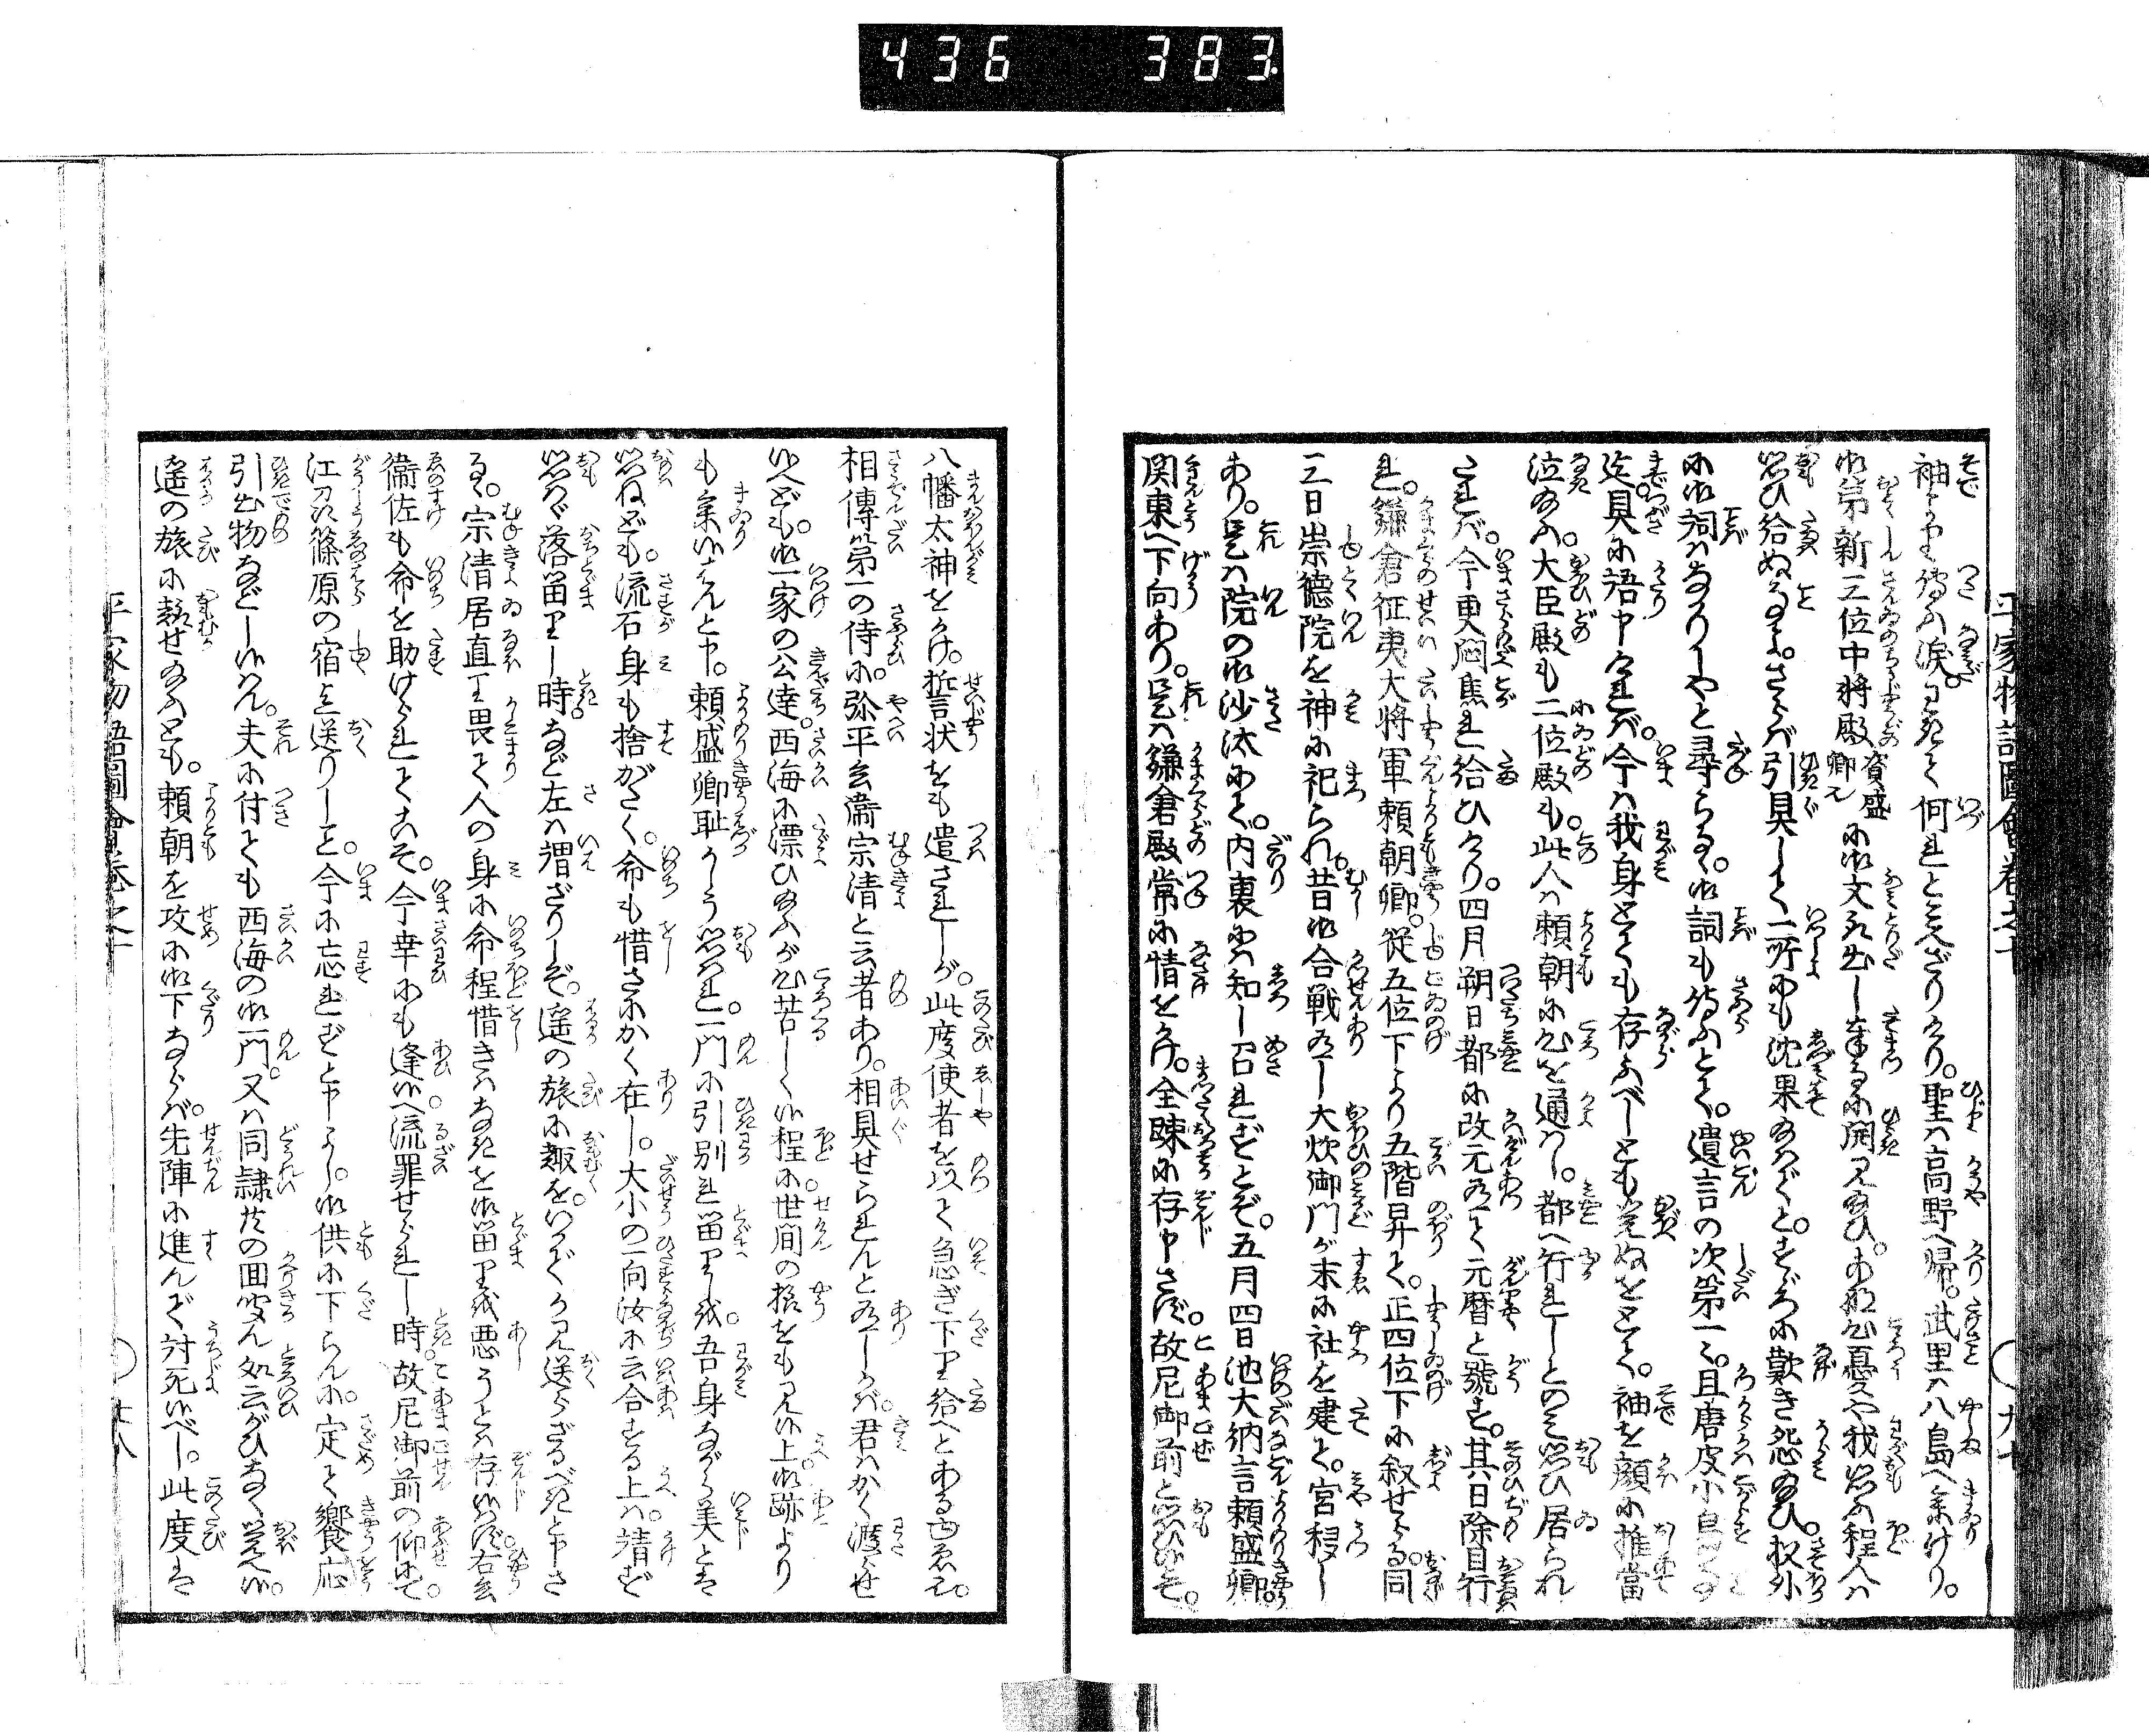 436 383
平家物語圖會卷之十
袖より傳ふ涙。わきて何れと見へざりけり。聖は高野へ帰。武里は八島へ參けり。
御弟新三位中将殿資盛卿也に御文取出し奉るに開見給ひ。あな心憂や我思ふ程人は
思ひ給ぬるよ。さらば引具して一所にも沈果給はでと。さめ〴〵に歎き怨給ひ。扨外
に御詞はなかりしやと尋らる。御詞も侍ふとて。遺言の次第一々。且唐皮小烏の事
迄具に語申ければ。今は我身とても存ふべしとも覚ぬをとて。袖を顔に推當
泣給ふ。大臣殿も二位殿も。此人は頼朝に心を通はし。都へ行れしとのみ思ひ居られ
されば。今更悶焦れ給ひけり。四月朔日都に改元有て元暦と號す。其日除目行
れ。鎌倉征夷大将軍頼朝卿。従五位下より五階昇て。正四位下に叙せらる。同
三日崇徳院を神に祀られ。昔御合戦有し大炊御門が末に社を建て。宮移し
あり。是は院の御沙汰にて。内裏には知し召れずとぞ。五月四日池大納言頼盛卿
関東へ下向あり。是は鎌倉殿常に情をかけ。全疎に存申さず。故尼御前と思ひ侍そ。
八幡太神をかけ。誓状をも遣されしが。此度使者を以て急ぎ下り給へとある故也。
相傳第一の侍に。弥平兵衞宗清と云者あり。相具せられんと有しかば。君はかく渡らせ
候へども。御一家の公達。西海に漂ひ給ふが心苦しく候程に。世間の様をも見候上。御跡より
も參候はんと申。頼盛卿耻かしう思はれ。一門に引別れ留りしは。吾身ながら美とは
思はねども。流石身も捨がたく。命も惜さにかく在し。大小の一向汝に云合する上は。請ず
思はゞ落留りし時。など左は謂ざりしぞ。遥の旅に趣を。いかでか見送らざるべきと申さ
る。宗清居直り畏て人の身に命程惜きはなきを御留りを悪うとは存候はず。右兵
衞佐も命を助けられてこそ。今幸にも逢候へ流罪せられし時。故尼御前の仰にて。
江刕篠原の宿迄送りしを。今に忘れずと申よし。御供に下らんに。定て饗応
引出物などし候はん。夫に付ても西海の御一門。又は同隷共の回聞ん処云がひなく覚へ候。
遥の旅に赴せ給ふとも。頼朝を攻に御下ならば。先陣に進んで討死候べし。此度は
平家物語圖會卷之十
廿八